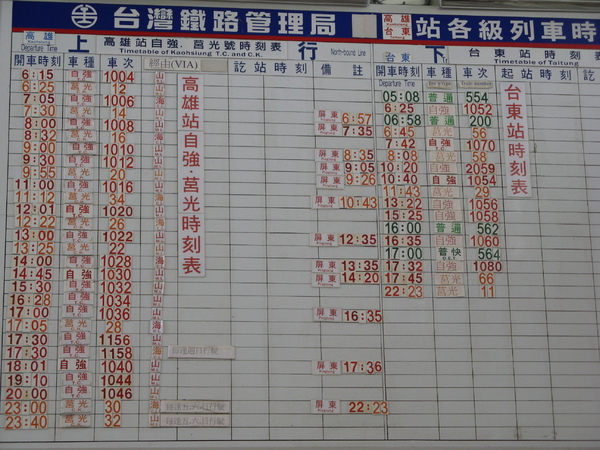 台灣鐵路管理局 高雄 台東 站各級列車時
高雄 Departure Time 上 高雄站自強、莒光號時刻表 Timetable of Kaohsiung T.C. and C.K. 行 North-bound Line 台東 下 台東站時刻表 Timetable of Taitung
開車時刻 車種 車次 經由(VIA) 訖站時刻 備註 開車時刻 車種 車次 起站時刻 訖
Departure Time
高雄站自強·莒光時刻表
台東站時刻表
6:15 自強 1004 山
6:25 莒光 12 山
7:05 自強 1006 海
7:30 莒光 14 山
8:00 自強 1008 山
8:32 莒光 16 山
9:00 自強 1010
9:30 自強 1012
9:55 莒光 20
11:00 自強 1016
11:12 莒光 34
12:01 自強 1020
12:22 莒光 26
13:00 自強 1022
13:25 莒光 22
14:00 自強 1028
14:45 自強 1030
15:30 自強 1032
16:28 自強 1034
17:00 自強 1036
17:05 莒光 28 海
17:30 自強 1156
17:30 自強 1158 海
18:01 自強 1040 山
19:10 自強 1044 山
20:00 自強 1046 山
23:00 莒光 30 海
23:40 莒光 32 山
屏東 6:57
屏東 7:35
屏東 8:35
屏東 9:05
屏東 9:26
屏東 10:43
屏東 12:35
屏東 13:35
屏東 14:20
屏東 16:35
屏東 17:36
屏東 22:23
05:08 普通 554
6:25 自強 1052
06:58 普通 200
6:45 莒光 56
7:42 自強 1070
8:08 莒光 58
10:20 自強 2059
10:40 自強 1054
11:43 莒光 29
13:22 自強 1056
15:25 自強 1058
16:00 普通 562
16:35 自強 1060
17:00 普快 564
17:32 自強 1080
17:45 莒光 66
22:23 莒光 11